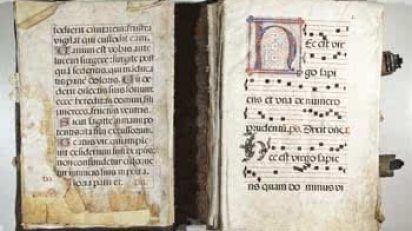 todierit ciuitatem: frustra
vigilat qui custodit eam.
Vanum est vobis ante
lucem surgere: surgite post
quam sederitis, qui mandu
catis panem doloris. Cum de
derit dilectis suis somnum:
ecce hereditas domini filii
merces fructus ventris.
Sicut sagitte in manu po
tentis: ita filii excussorum.
Beatus vir qui imple
uit desiderium suum ex ipsis:
non confundetur cum loque
tur inimicis suis in porta.
Hec est vir
go sapi
ens et vna de numero
prudentum. ps. Dixit dns.
Hec est virgo sapi
ens quam do minus vi